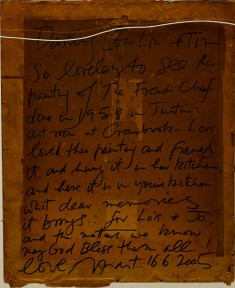 Darling Lois + Tim
So loveley to see this
painting of The French Chef
done in 1958 in Tintin's
art room at Cranbrook. Lois
loved this painting and framed
it, and hung it in her kitchen
and here it is in your kitchen
what dear memories
it brings.. for Lois +
and the mothers we know
may God Bless them all!
love, 16 6 2005